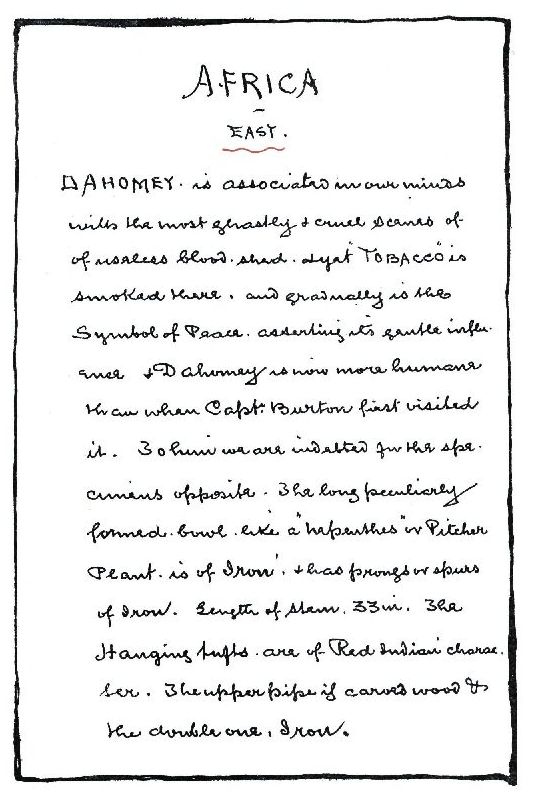 AFRICA
EAST.
DAHOMEY. is associated in our minds
with the most ghastly & cruel scenes of
of useless blood-shed. & yet "TOBACCO" is
smoked there. and gradually is the
Symbol of Peace. asserting its gentle influ-
ence & Dahomey is now more humane
than when Capt. Burton first visited
it. To him we are indebted for the spe-
cimens opposite. The long peculiarly
formed. bowl. like a "nepenthes" or Pitcher
Plant. is of Iron. & has prongs or spurs
of Iron. Length of stem. 33 in. The
Hanging tufts. are of Red Indian charac-
ter. The upper pipe if carved wood &
the double one, Iron.